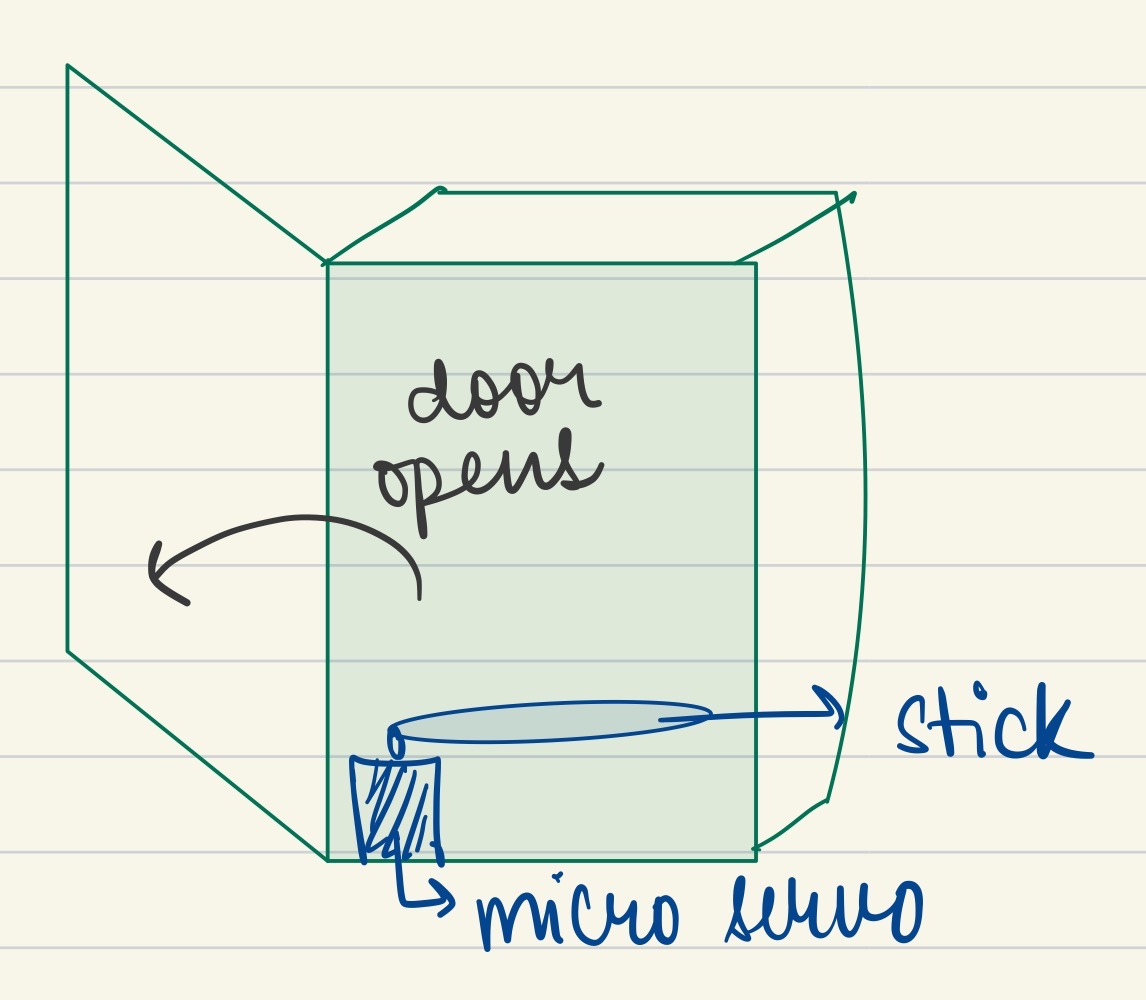 door
opens
stick
micro servo